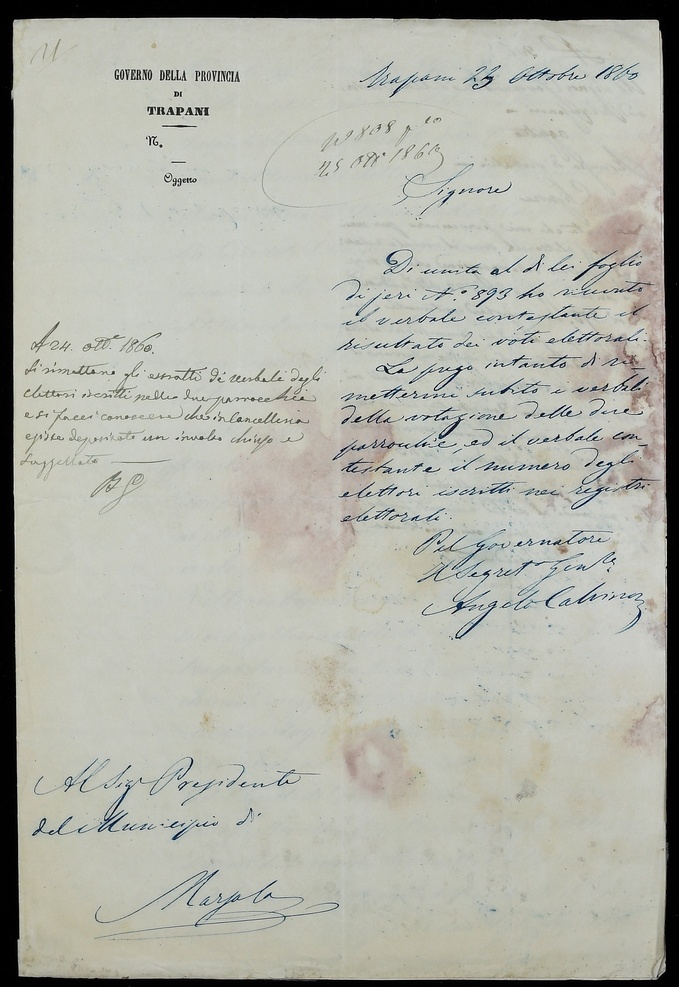 GOVERNO DELLA PROVINCIA
DI
TRAPANI
N.
Oggetto
Trapani 23 Ottobre 1860
N 808 p
25 Ott 1860
Signore
Di unita al di lei foglio
di jeri N.o 893 ho ricevuto
il verbale contestante il
risultato dei voti elettorali.
La prego intanto di ri=
mettermi subito i verbali
della votazione delle due
parrocchie, ed il verbale con=
testante il numero degli
elettori iscritti nei registri
elettorali.
Pel Governatore
Il Segret.o Gen.le
Angelo Calvino
A 24. ott.e 1860.
Si rimettano gli estratti di verbali degli
elettori iscritti nelle due parrocchie
e si facci conoscere che in Cancelleria
esiste depositato un involto chiuso e
suggellato
Al Sig.r Presidente
del Municipio di
Marsala